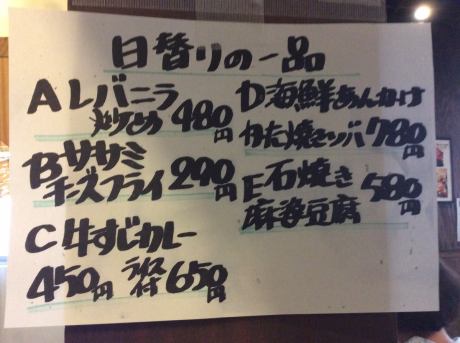 日替りの一品
A レバニラ
炒め 480円
B ササミ
チーズフライ 290円
C 牛すじカレー
450円 ライス付 650円
D 海鮮あんかけ
かた焼きソバ 780円
E 石焼き
麻婆豆腐 580円